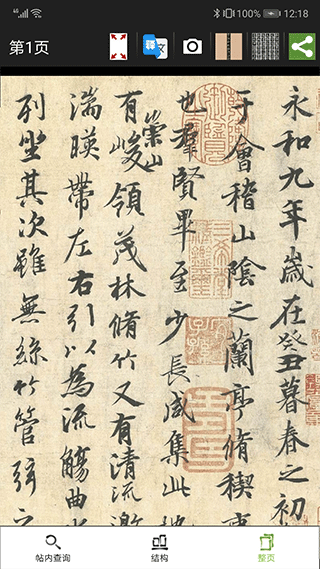 4G 100% 12:18
第1页
釋 文
永和九年歲在癸丑暮春之初
于會稽山陰之蘭亭脩稧事
也羣賢畢至少長咸集此地
有崇山峻領茂林脩竹又有清流激
湍暎帶左右引以為流觴曲水
列坐其次雖無絲竹管弦之
帖内查询 结构 整页